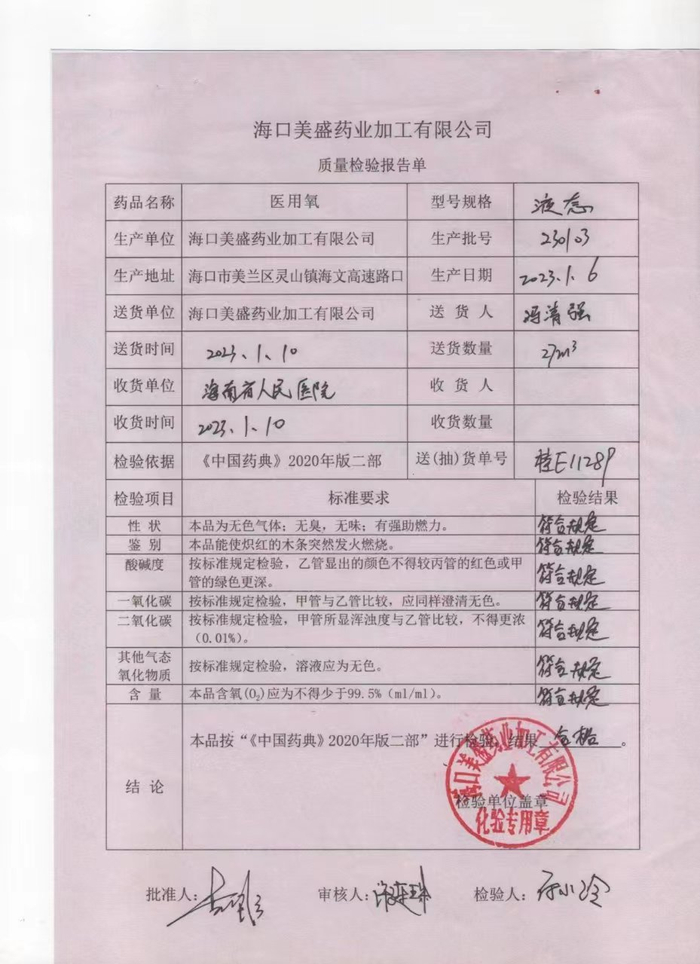 海口美盛药业加工有限公司
质量检验报告单
药品名称 医用氧 型号规格 液态
生产单位 海口美盛药业加工有限公司 生产批号 230103
生产地址 海口市美兰区灵山镇海文高速路口 生产日期 2023.1.6
送货单位 海口美盛药业加工有限公司 送货人 冯清强
送货时间 2023、1、10 送货数量 27m³
收货单位 海南省人民医院 收货人
收货时间 2023、1、10 收货数量
检验依据 《中国药典》2020年版二部 送(抽)货单号 桂E11289
检验项目 标准要求 检验结果
性状 本品为无色气体；无臭，无味；有强助燃力。 符合规定
鉴别 本品能使炽红的木条突然发火燃烧。 符合规定
酸碱度 按标准规定检验，乙管显出的颜色不得较丙管的红色或甲
管的绿色更深。 符合规定
一氧化碳 按标准规定检验，甲管与乙管比较，应同样澄清无色。 符合规定
二氧化碳 按标准规定检验，甲管所显浑浊度与乙管比较，不得更浓
（0.01%）。 符合规定
其他气态
氧化物质 按标准规定检验，溶液应为无色。 符合规定
含量 本品含氧(O₂)应为不得少于99.5%（ml/ml）。 符合规定
本品按“《中国药典》2020年版二部”进行检验，结果 合格 。
结论
海口美盛药业加工有限公司
检验单位盖章
化验专用章
批准人： 审核人： 检验人：